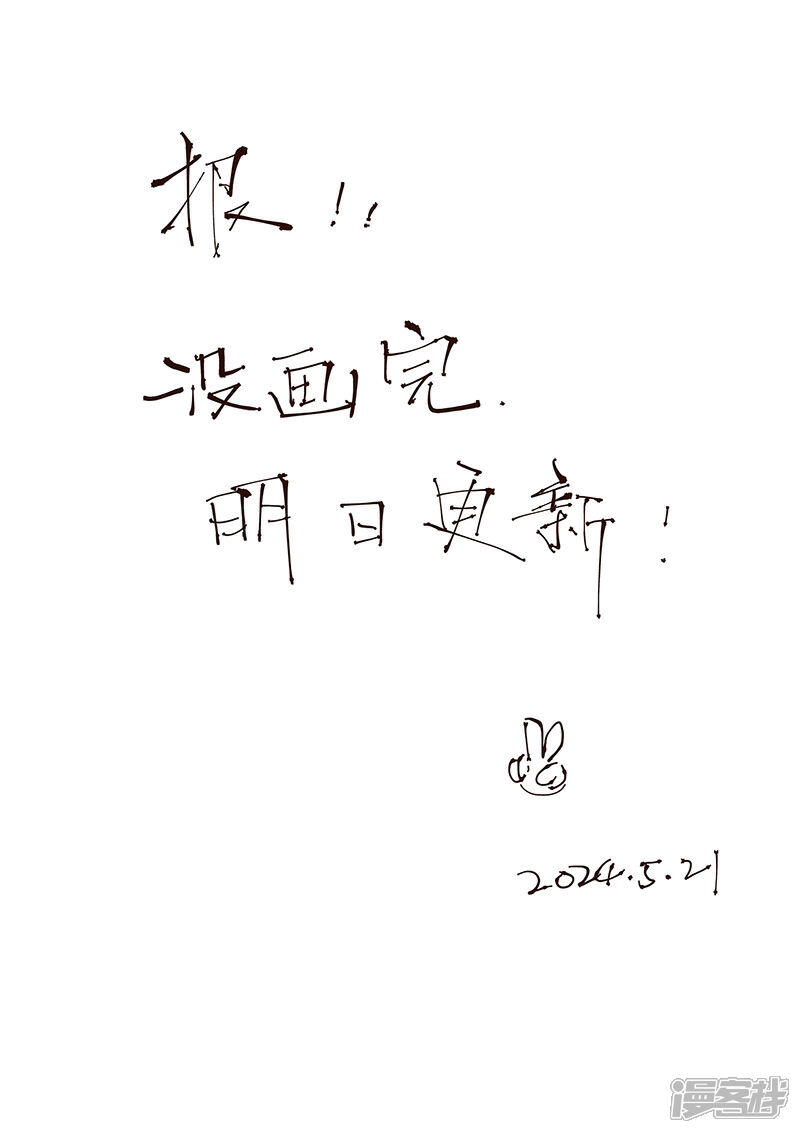 报!!
没画完.
明日更新!
2024.5.21
漫客栈